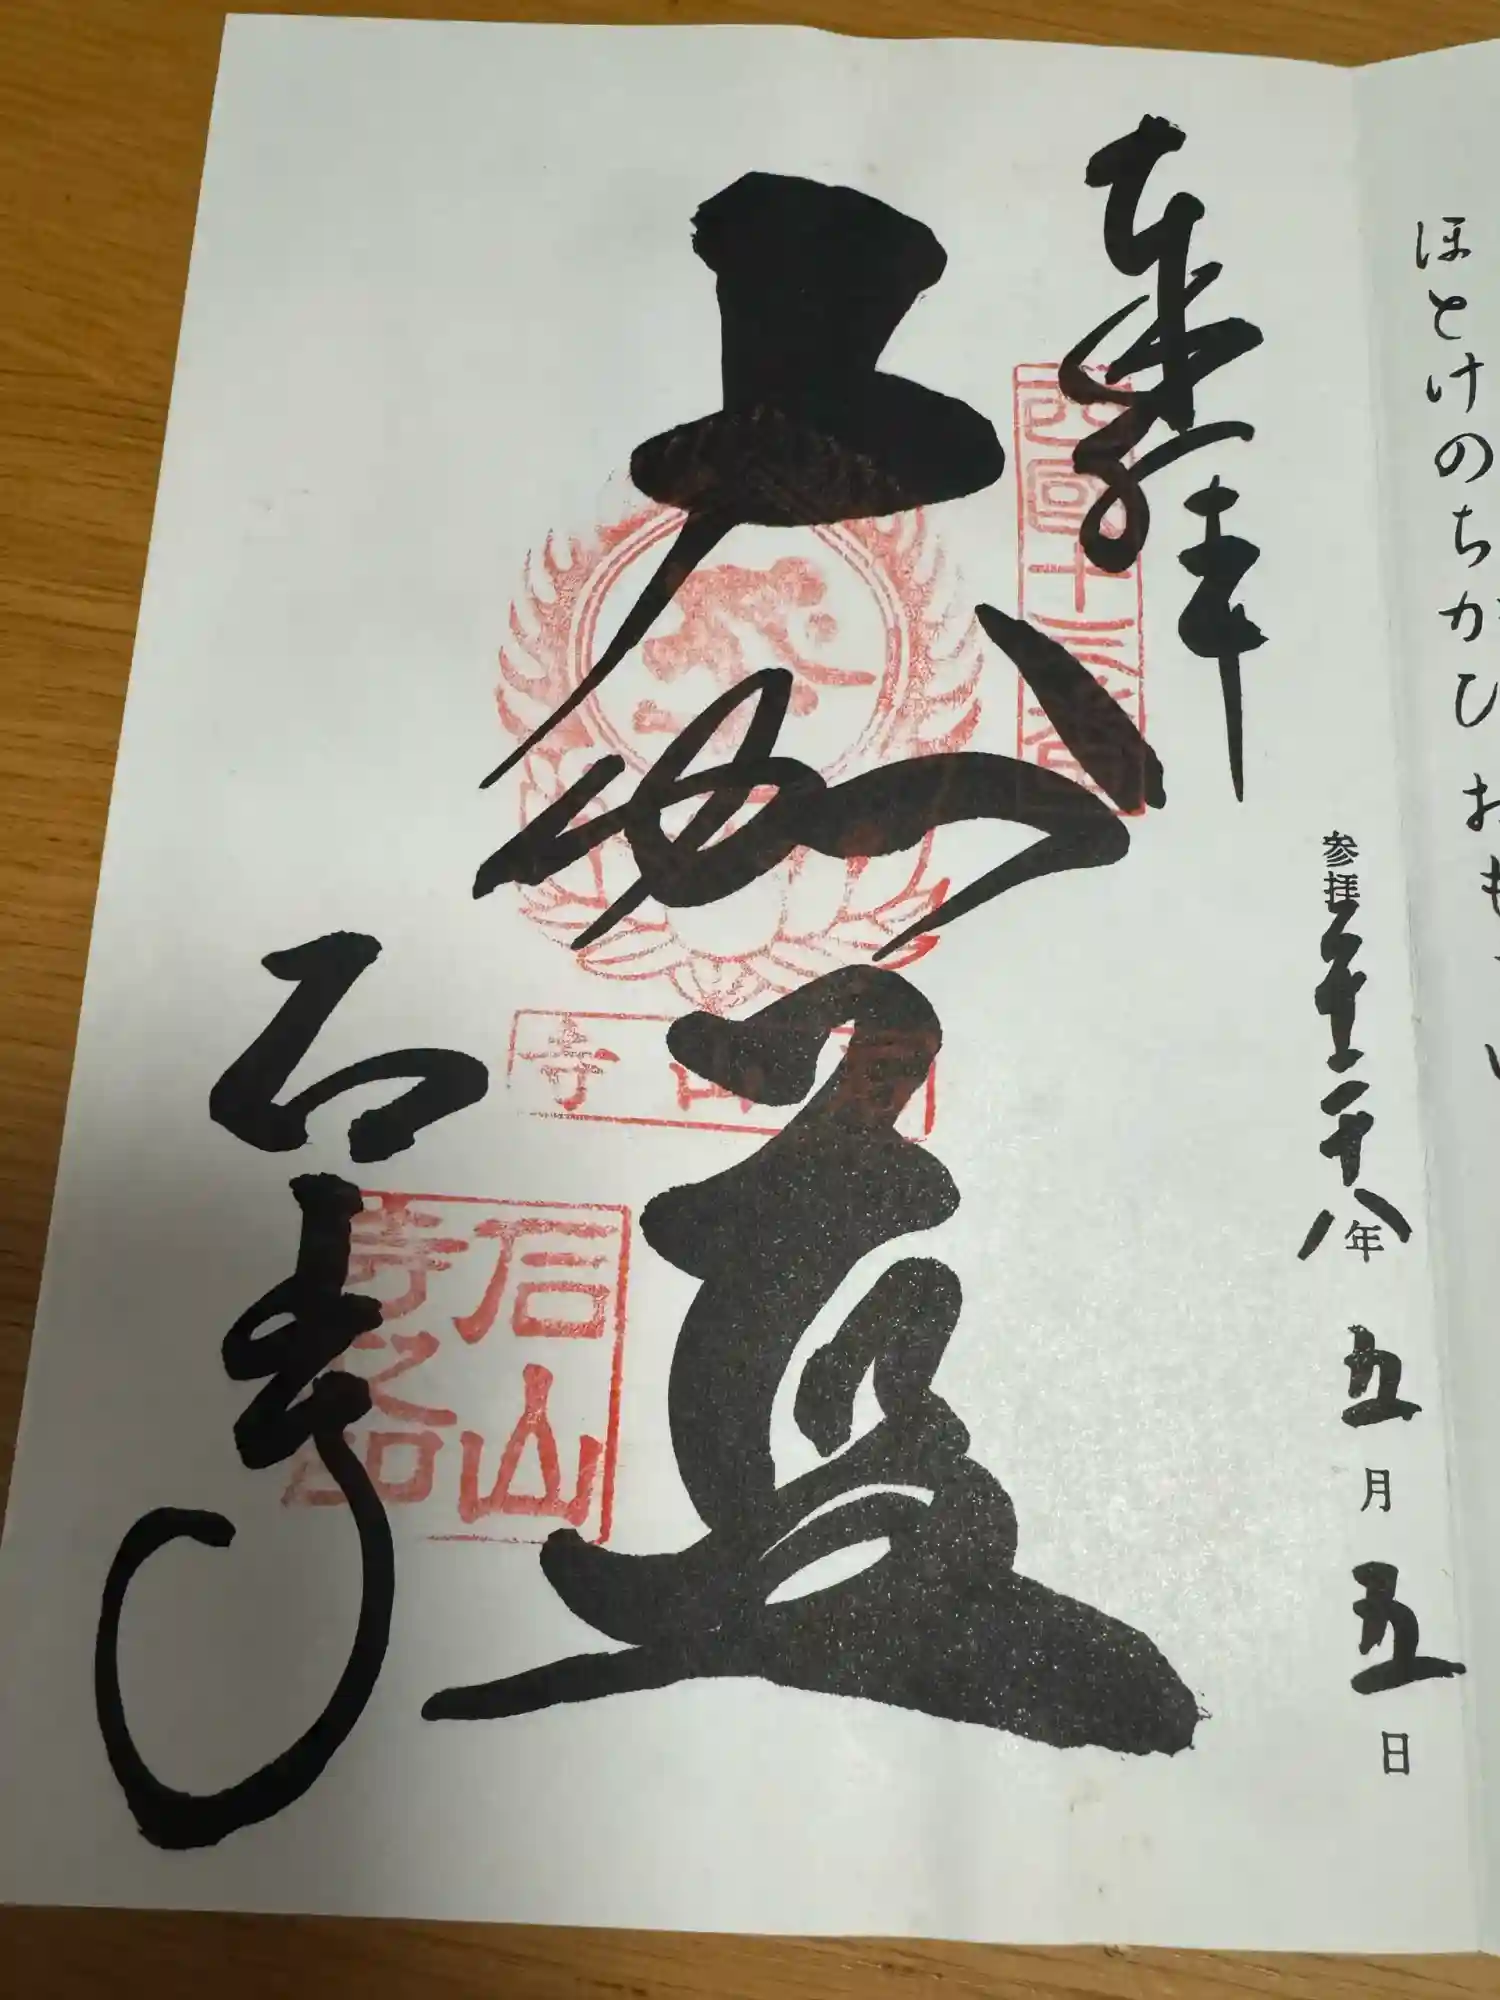 ほとけのちかひ おも
奉拝
西国十三番
参拝平成二十八年 五月 五日
大伽藍
石山寺
石山寺
石山寺之印